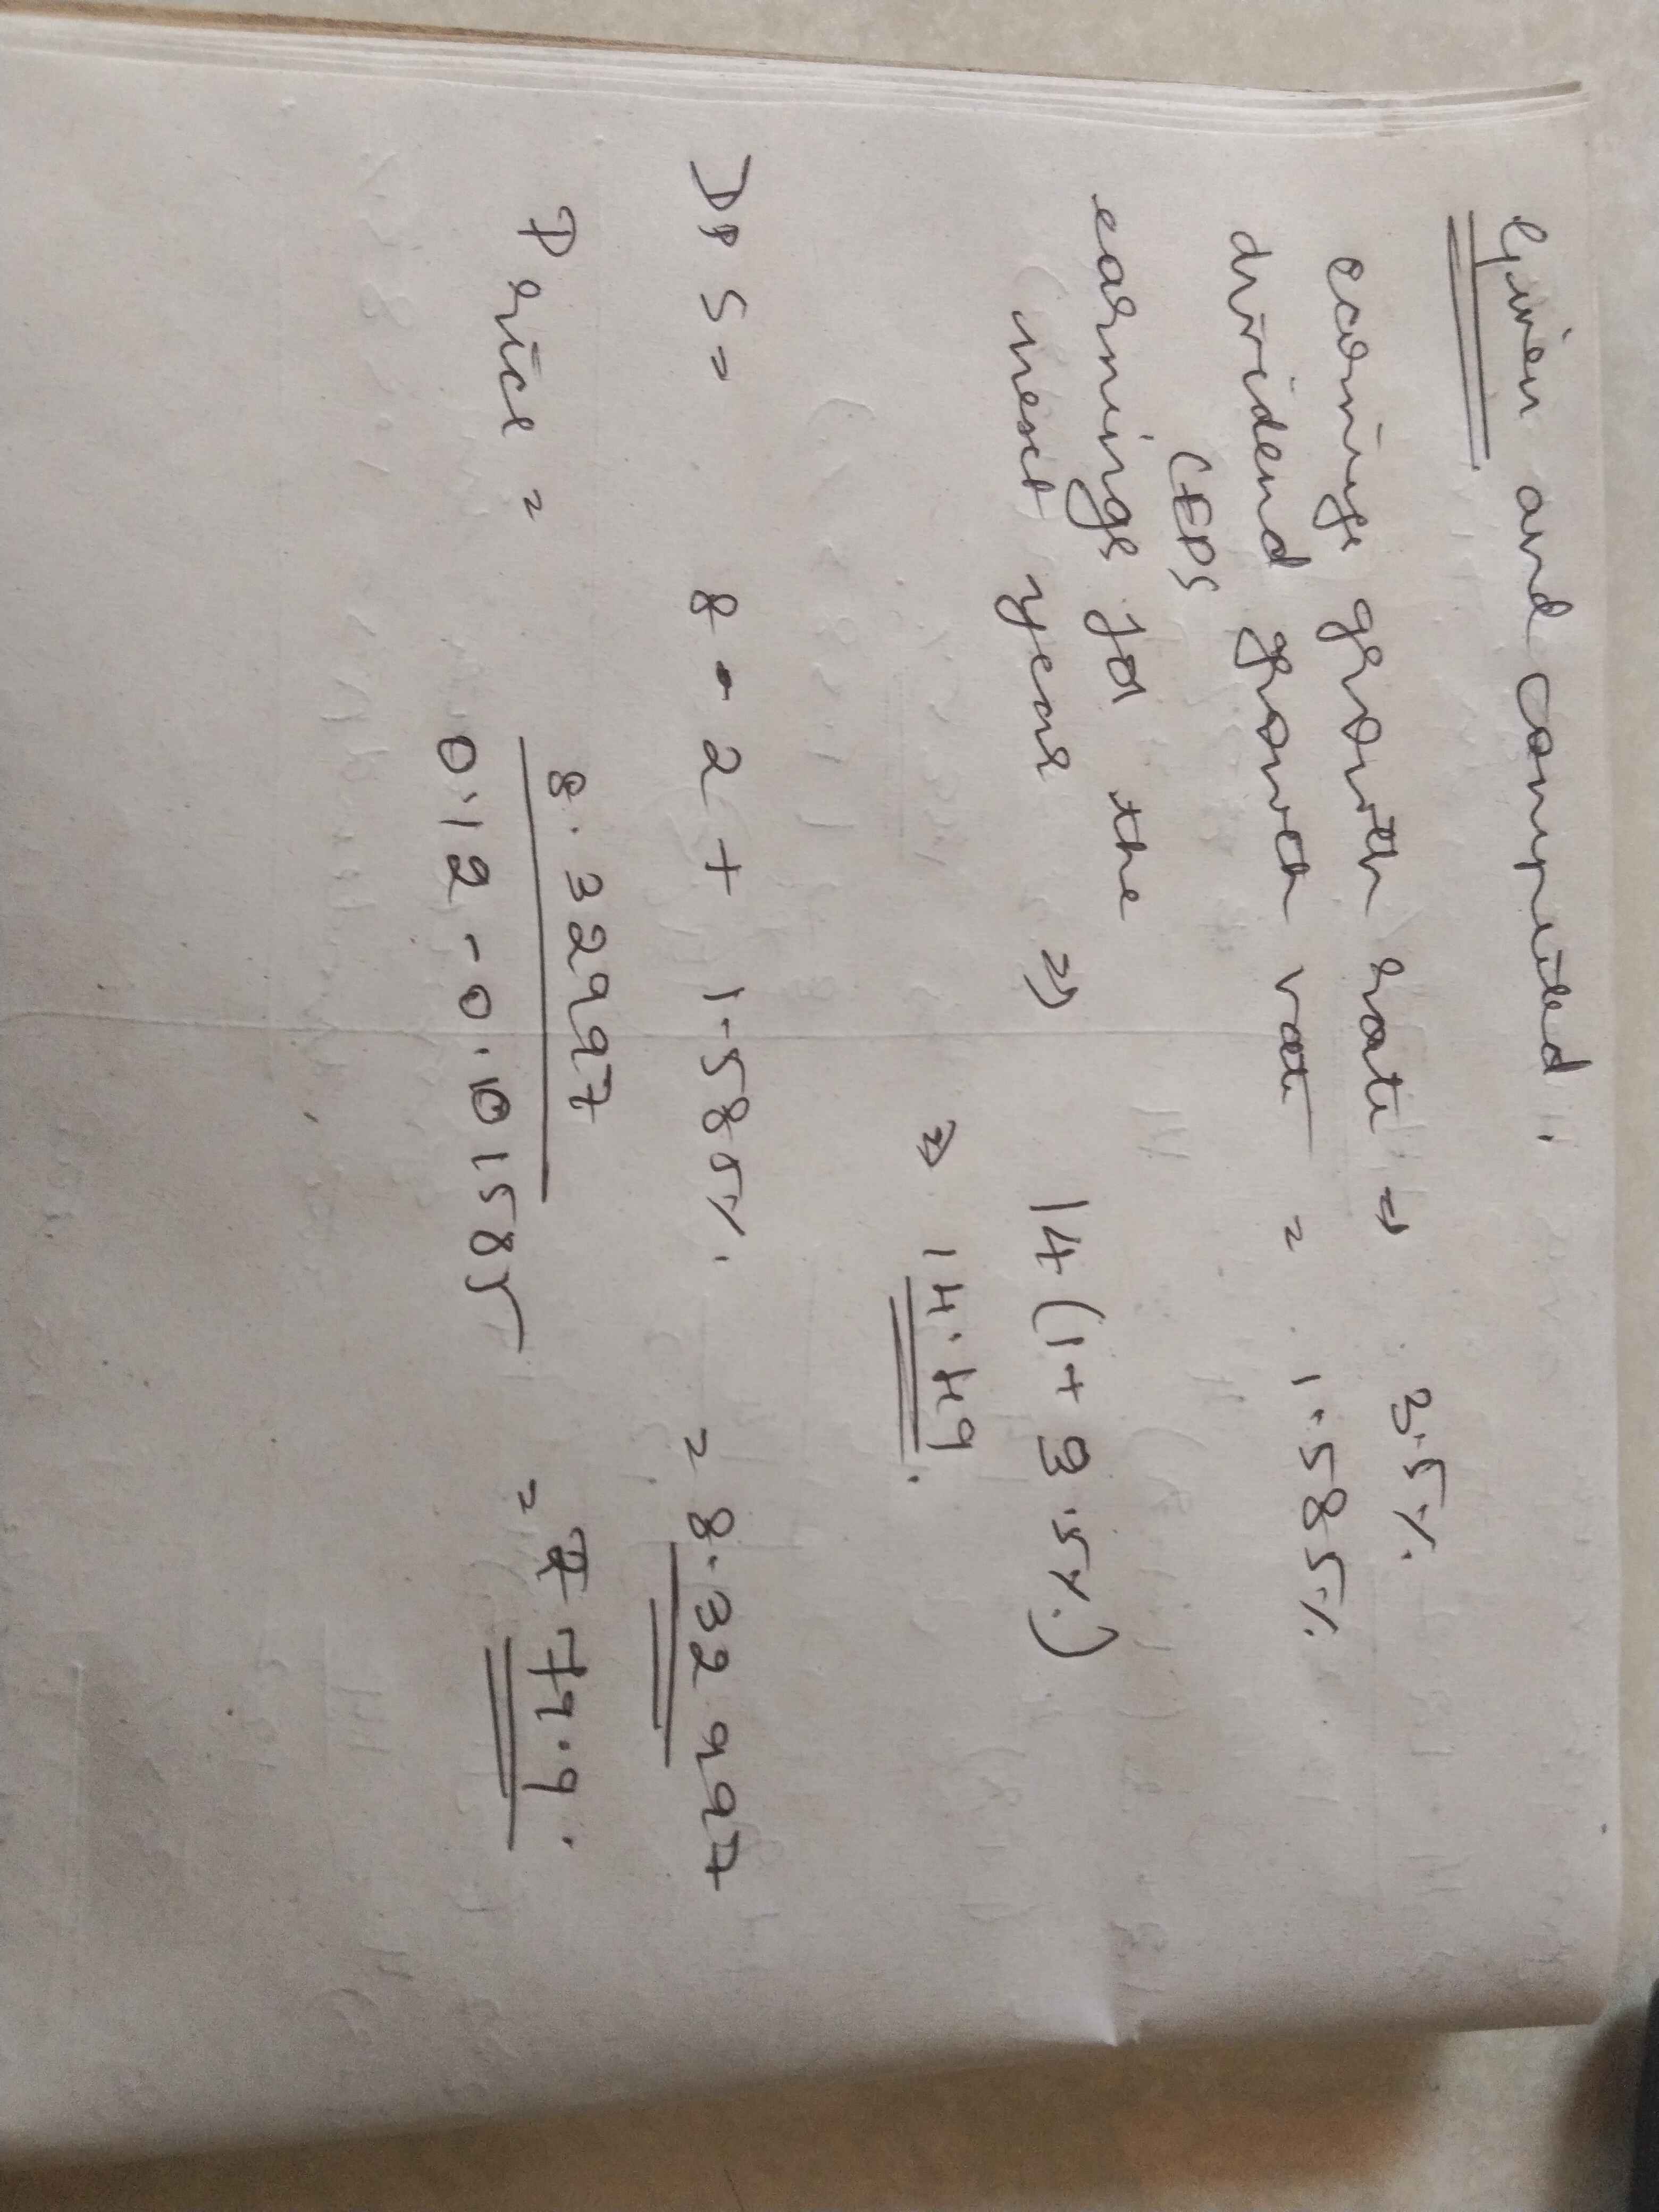 Given and computed:
earnings growth rate ⇒ 3.5%
dividend growth rate = 1.585%
(EPS
earnings for the
next year ⇒ 14(1+3.5%)
⇒ 14.49.
DPS = 8.2 + 1.585% = 8.329997
Price = 8.32997 / 0.12 - 0.01585 = ₹ 79.9.